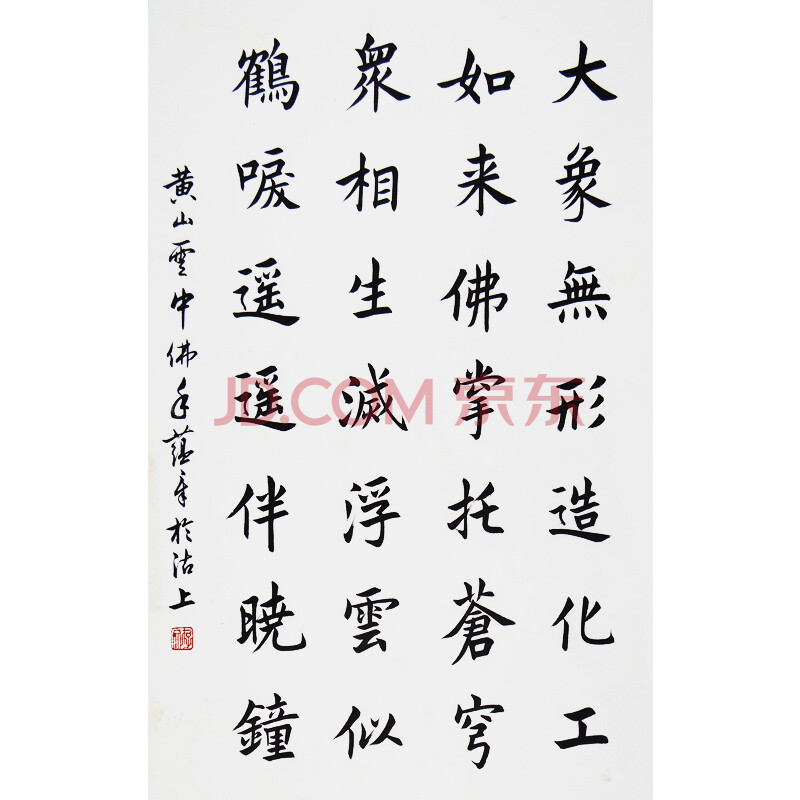 大象無形造化工
如来佛掌托蒼穹
衆相生滅浮雲似
鶴唳遥遥伴暁鐘
黄山雲中佛手蕴章於沽上
JD.COM 京东